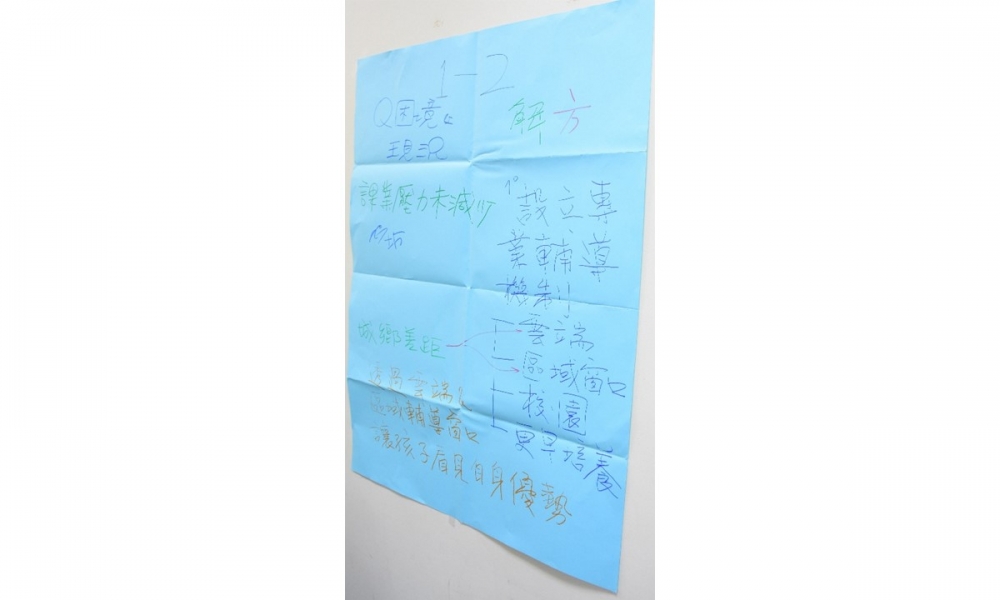 1-2
Q困境&
現況
解方
課業壓力未減少
1°設立專
業輔導
機制
城鄉差距
雲端
區域窗口
校園
更早培養
透過雲端&
區域輔導窗口
讓孩子看見自身優勢